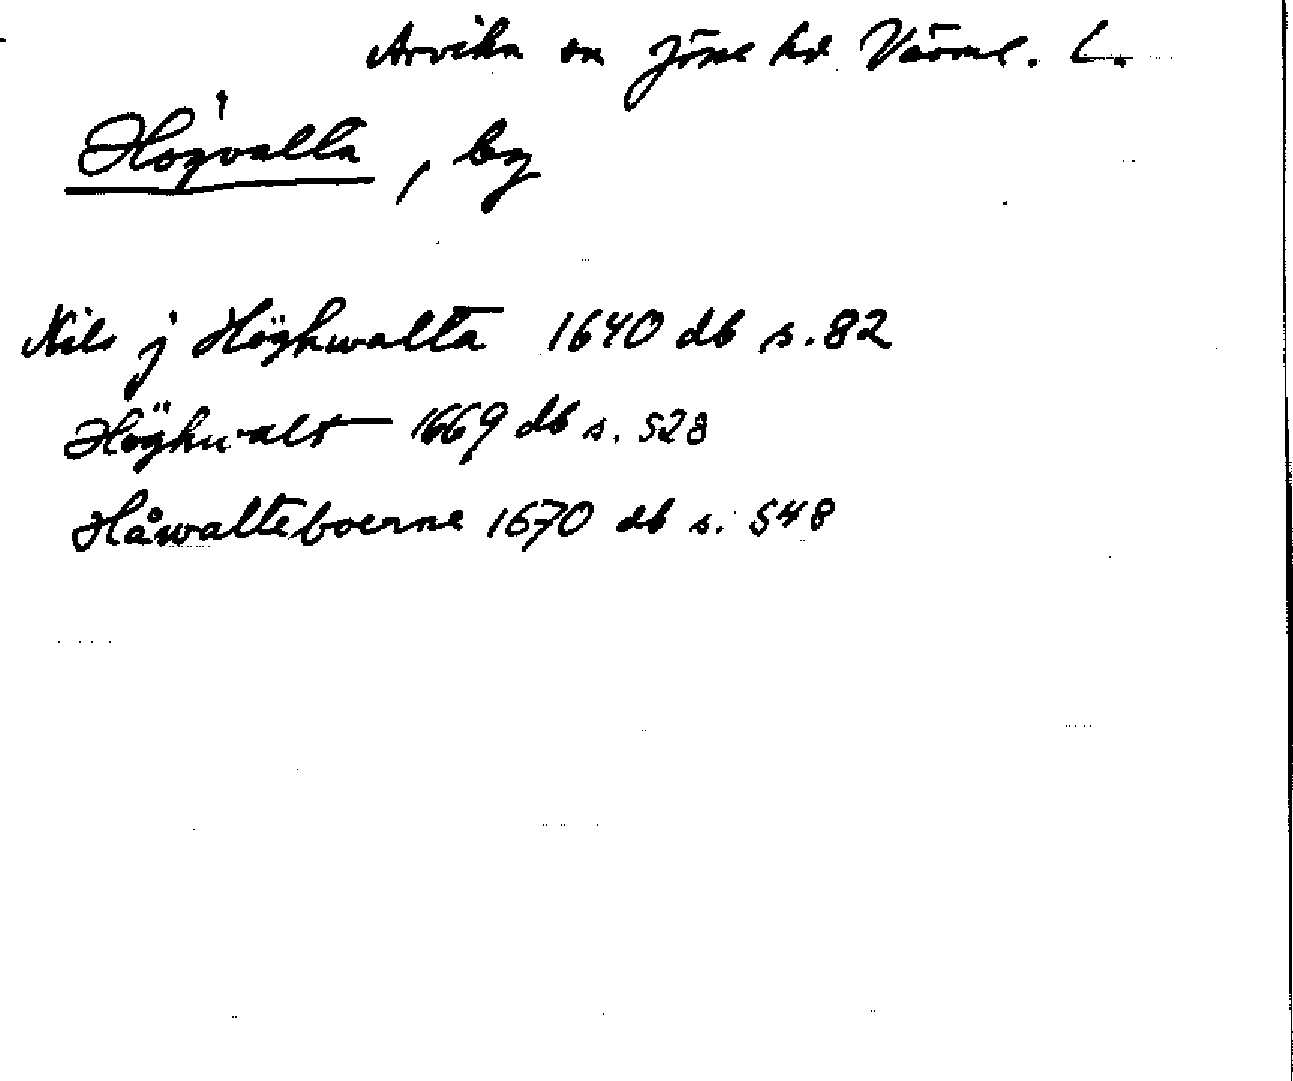 Arvika sn Jösse hd Värml. l.
Högvalta, by
Nils j Höghwalta 1640 db s. 82
Höghwalt 1669 db s. 528
Håwalteboerne 1670 db s. 548